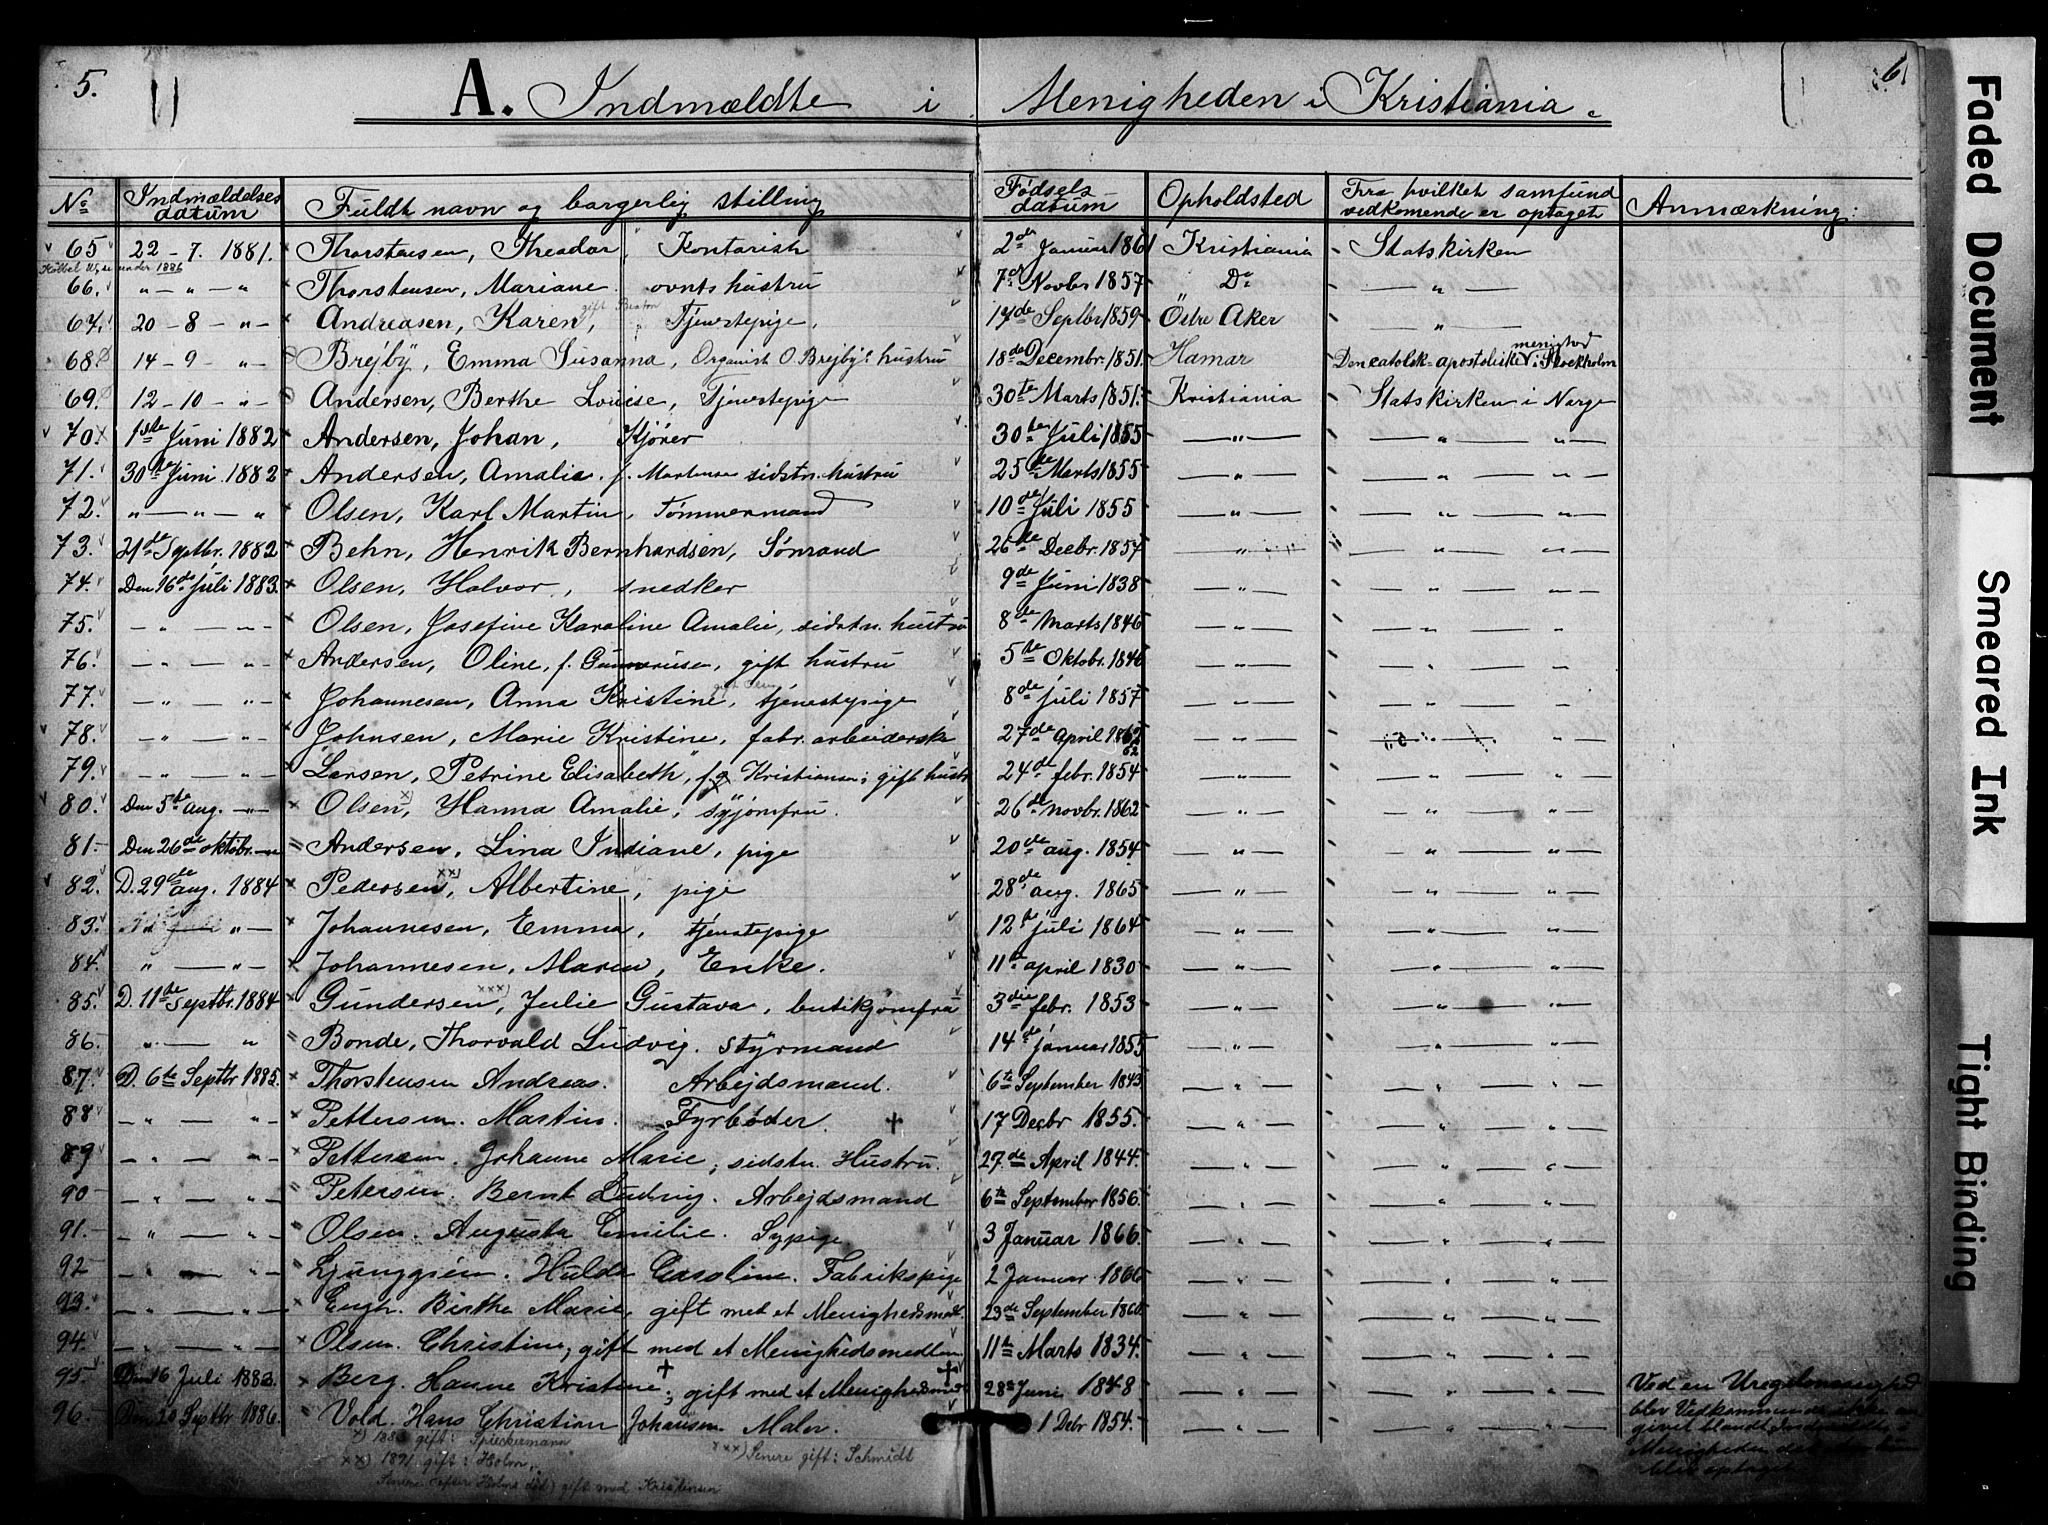 5.
6
A. Indmældte i Menigheden i Kristiania.
No Indmældelses datum Fuldt navn og borgerlig stilling Fødsels datum Opholdsted Fra hvilket samfund vedkomende er optaget Anmærkning:
65 22 – 7. 1881. Thorstensen, Theodor, Kontorist 2de Januar 1861 Kristiania Statskirken
66. „ – „ – „ Thorstensen, Mariane ovnts hustru 7de Novbr 1857 Do — „ —
67. 20 – 8 – „ – Andreasen, Karen, gift Tjenestepige, 14de Septbr 1859 Östre Aker — „ —
68 14 – 9 – „ – Brejby, Emma Susanna, Organist O. Brejby's hustru 18de Decembr. 1851. Hamar Den catolsk-apostoliske menighed i Stockholm
69. 12 – 10 – „ – Andersen, Berthe Louise, Tjenestepige 30te Marts 1851. Kristiania Statskirken i Norge
70 1ste Juni 1882 Andersen, Johan, Kjører 30te Juli 1855 — „ — — „ — „ —
71. 30te Juni 1882 Andersen, Amalie, f. Martensen sidstn. hustru 25de Marts 1855 — „ — — „ — „ —
72. „ — „ – „ Olsen, Karl Martin, Tømmermand 10de Juli 1855 — „ — — „ — „ —
73. 21de Septbr. 1882 Behn, Henrik Bernhardsen, Sömand 26de Decbr. 1857 — „ — — „ — „ —
74. Den 16de Juli 1883. Olsen, Halvor, snedker 9de Juni 1838 — „ — — „ — „ —
75. – „ – „ – Olsen, Josefine Karoline Amalie, sidstn. hustru 8de Marts 1846 — „ — — „ — „ —
76. – „ – „ – Andersen, Oline, f. Gunnerusen, gift hustru 5te Oktobr. 1846 — „ — — „ — „ —
77. – „ – „ – Johannesen, Anna Kristine, tjenestepige 8de Juli 1857 — „ — — „ — „ —
78. – „ – „ – Johnsen, Marie Kristine, fabr. arbeiderske 27de April 1862 62 — „ — — „ — „ —
79. – „ – „ – Larsen, Petrine Elisabeth, f. Kristiansen; gift hustr. 24de febr. 1854 — „ — — „ — „ —
80. Den 5te aug. – „ – Olsen, x) Hanna Amalie, syjomfru. 26de novbr. 1862 — „ — — „ — „ —
81. Den 26de oktobr. – „ Andersen, Lina Indiane, pige 20de aug. 1854 — „ — — „ — „ —
82. D. 29de aug. 1884 Pedersen, xx) Albertine, pige 28de aug. 1865 — „ — — „ — „ —
83. „ – Johannesen, Emma, tjenstepige 12te juli 1864 — „ — — „ — „ —
84. „ — „ – Johannesen, Maren, Enke. 11te april 1830 — „ — — „ — „ —
85. D. 11te Septbr. 1884 Gundersen, xxx) Julie Gustava, butikjomfru 3die febr. 1853 — „ — — „ — „ —
86. „ — „ Bonde, Thorvald Ludvig. styrmand 14de januar 1855 — „ — — „ — „ —
87. D. 6te Septbr 1885. Thorstensen Andreas. Arbejdsmand. 6te September 1843 — „ — — „ — „ —
88 – „ – „ – Pettersen. Martin. Fyrbøder. † 17 Decbr 1855. — „ — — „ — „ —
89 – „ – „ – Pettersen. Johanne Marie; sidstn. Hustru. 27de April 1844. — „ — — „ — „ —
90 – „ – „ – Petersen. Bernt Ludvig. Arbejdsmand 6te September 1856. — „ — — „ — „ —
91. – „ – „ – Olsen. Augusta Emilie. Sypige 3 Januar 1866. — „ — — „ — „ —
92 – „ – „ – Ljunggrén. Hulda Caroline. Fabrikspige 2 Januar 1866 — „ — — „ — „ —
93. – „ – „ – Engh. Birthe Marie, gift met et Menighedsmedl. 23de September 1860 — „ — — „ — „ —
94. – „ – „ – Olsen. Christine, gift med et Menighedsmedlem 11te Marts 1834. — „ — — „ — „ —
95. Den 16 Juli 1883. Berg. Hanne Kristine †; gift med et Menighedsmedl. † 28de Juni 1848 — „ — — „ — „ — Ved en Uregelmæssighed
96. Den 20 Septbr 1886. Vold. Hans Christian Johansen. Maler. 1 Decbr 1854. — „ — — „ — „ — blev Vedkommende ikke an
givet blandt Indmeldte i
Menigheden
blev optaget
x) 1883 gift: Spieckermann
xx) 1891 gift: Holm,
Senere (efter Holms død) gift med Kristensen
xxx) Senere gift: Schmidt
Faded Document
Smeared Ink
Tight Binding